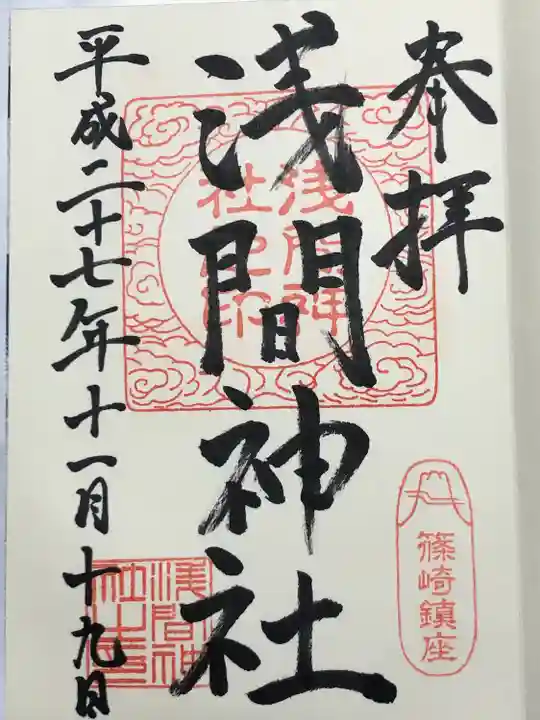 奉拝
篠崎鎮座
浅間神社
浅間神
社之印
平成二十七年十一月十九日